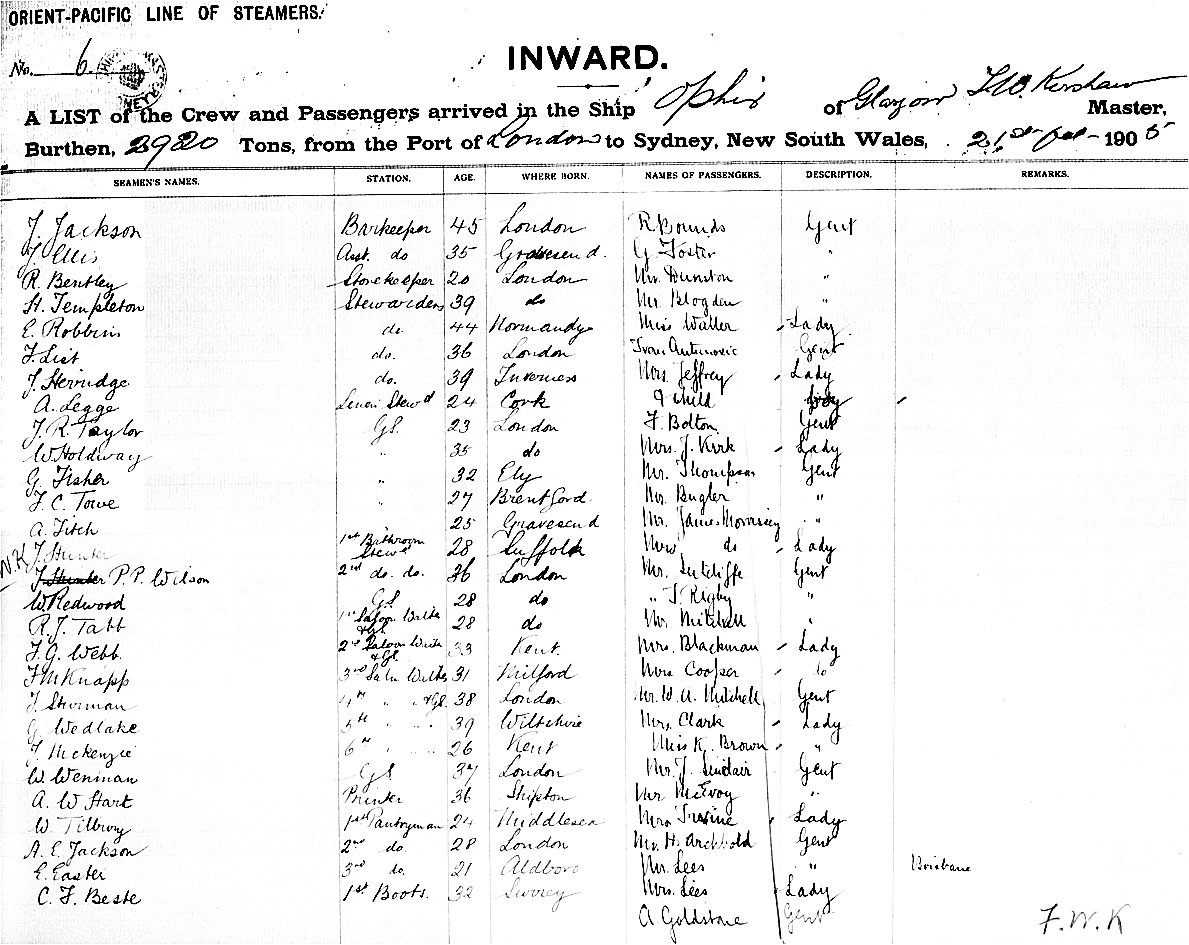 ORIENT-PACIFIC LINE OF STEAMERS.
No. 6.
INWARD.
A LIST of the Crew and Passengers arrived in the Ship Ophir of Glasgow F.W. Kershaw Master,
Burthen, 2920 Tons, from the Port of London to Sydney, New South Wales, 21st 1905
SEAMEN'S NAMES. STATION. AGE. WHERE BORN. NAMES OF PASSENGERS. DESCRIPTION. REMARKS.
J. Jackson Barkeeper 45 London R Bounds Gent
J Ellis Asst. do 35 Gravesend. G. Foster "
R. Bentley Storekeeper 20 London Mr. Dunston "
H. Templeton Stewardess 39 do Mr. Blogden "
E. Robbins do. 44 Normandy Miss Waller Lady
F. List do. 36 London Ivan Gent
J. do. 39 Inverness Mrs. Jeffrey Lady
A. Legge Linen Stewd 24 Cork & child
J. R. Taylor G.S. 23 London F. Bolton Gent
W Holdway " 35 do Mrs. J. Kirk Lady
G. Fisher " 32 Ely Mr. Thompson Gent
F. C. Towe " 27 Brentford Mr. Bugler "
A. Fitch 25 Gravesend Mr. James Morrisey "
J. Hunter 1st Bathroom Stewd 28 Suffolk Mrs do Lady
J. Hunter P. P. Wilson 2nd do. do. 36 London Mr. Sutcliffe Gent
W. Redwood G.S 28 do " J. Rigby "
R. J. Tabb 1st Saloon Waiter & GS 28 do Mr Mitchell "
F. G. Webb 2nd Saloon Waiter & GS 33 Kent. Mrs. Blackman Lady
F M Knapp 3rd Saln Waiter 31 Milford Mrs Cooper do
J. Sturman 4th " " & GS. 38 London Mr. W. A. Mitchell Gent
G Wedlake 5th " " 39 Wiltshire Mrs. Clark Lady
J. Mckenzie 6th " " 26 Kent Miss K. Brown "
W. Wenman GS 37 London Mr. J. Sinclair Gent
A. W Hart Printer 36 Shipton Mr McEvoy "
W. Tilbroy 1st Pantryman 24 Middlesex Mrs Irvine Lady
A. E. Jackson 2nd do. 28 London Mr. H. Archbold Gent
E. Easter 3rd do. 21 Aldboro Mr. Lees " Brisbane
C. F. Beste 1st Boots. 32 Surrey Mrs. Lees Lady
A Goldstone Gent F.W.K